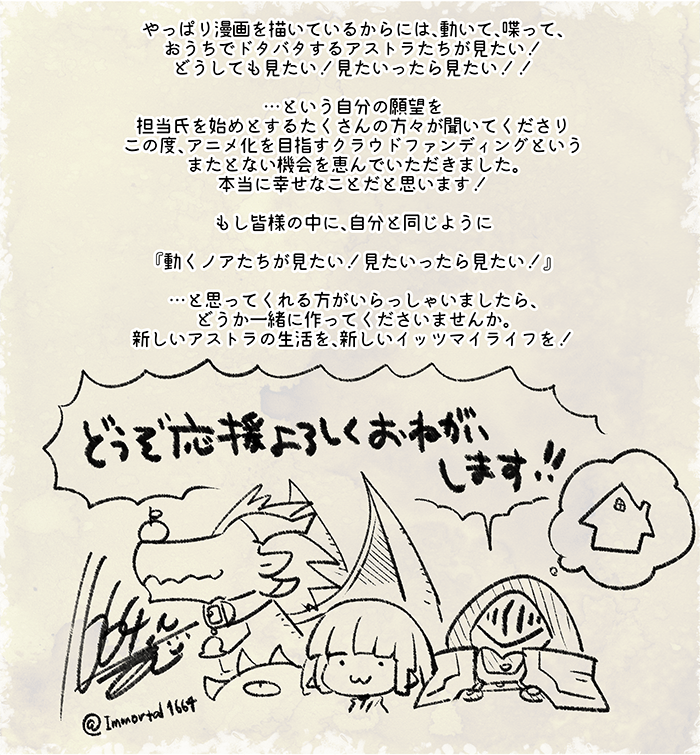 やっぱり漫画を描いているからには、動いて、喋って、
おうちでドタバタするアストラたちが見たい！
どうしても見たい！見たいったら見たい！！
…という自分の願望を
担当氏を始めとするたくさんの方々が聞いてくださり
この度、アニメ化を目指すクラウドファンディングという
またとない機会を恵んでいただきました。
本当に幸せなことだと思います！
もし皆様の中に、自分と同じように
『動くノアたちが見たい！見たいったら見たい！』
…と思ってくれる方がいらっしゃいましたら、
どうか一緒に作ってくださいませんか。
新しいアストラの生活を、新しいイッツマイライフを！
どうぞ応援よろしくおねがい
します!!
@Immortal1664